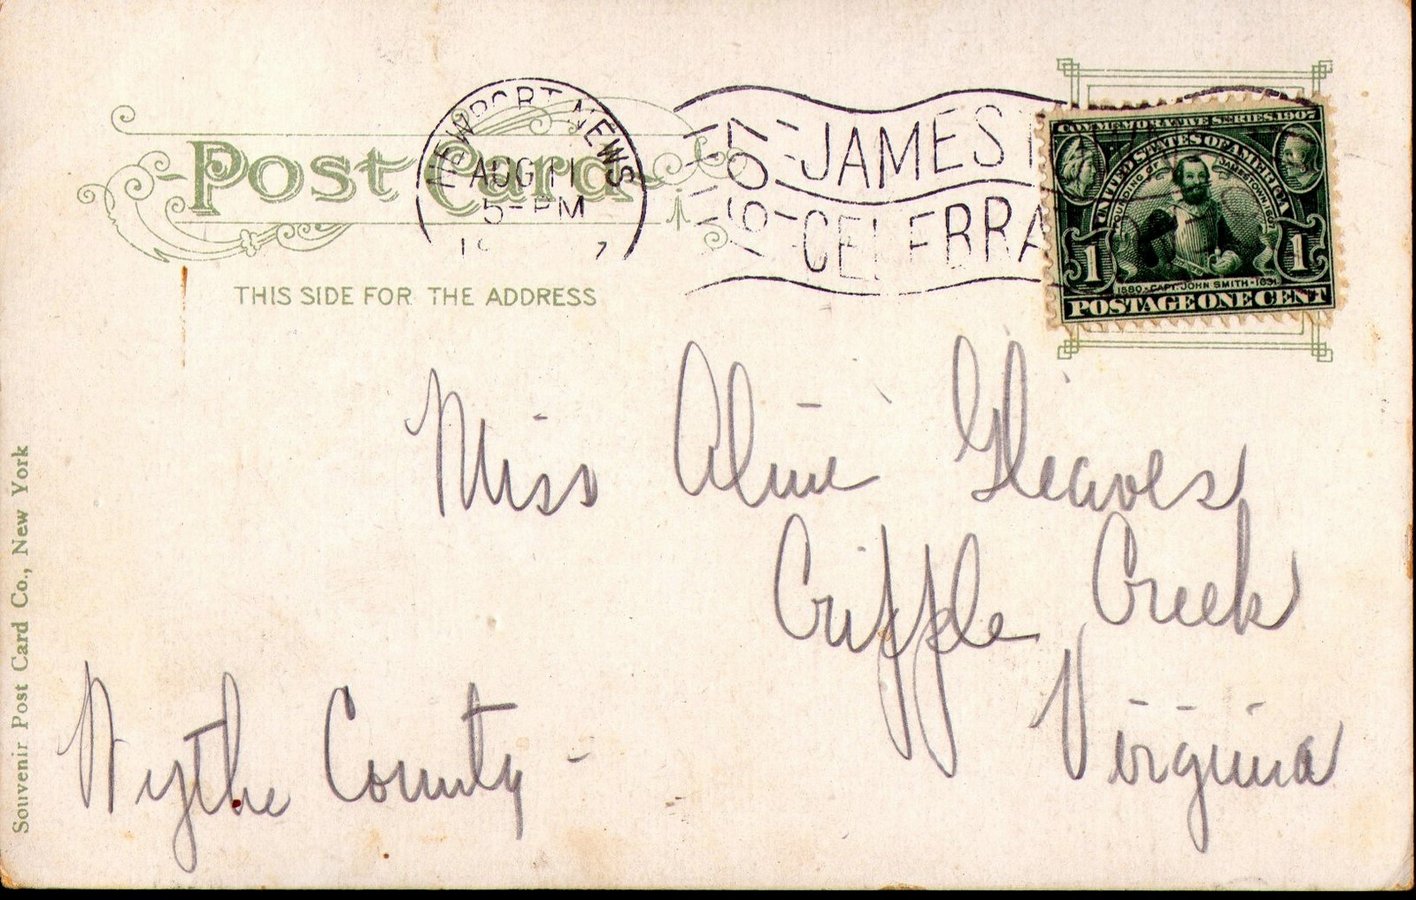 Post Card
THIS SIDE FOR THE ADDRESS
NEWPORT NEWS
AUG 11
5-PM
1607
1907
JAMES
CELEBRA
COMMEMORATIVE SERIES 1907
UNITED STATES OF AMERICA
FOUNDING OF JAMESTOWN 1607
1 1
1580-CAPT. JOHN SMITH-1631
POSTAGE ONE CENT
Miss Aline Gleaves
Cripple Creek
Virginia
Wythe County -
Souvenir Post Card Co., New York